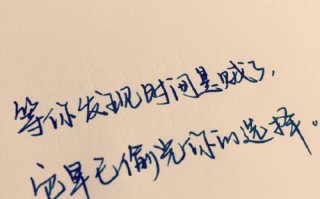 等你发现时间是贼了，
它早已偷光你的选择。